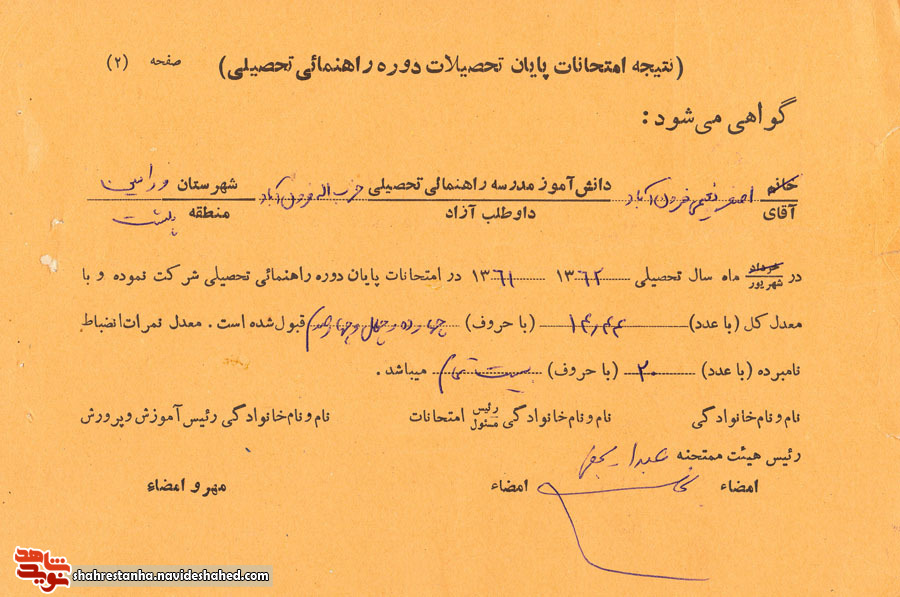 (نتیجه امتحانات پایان تحصیلات دوره راهنمائی تحصیلی) صفحه (۲)
گواهی می‌شود:
خانم آقای اصغر نعیمی فرون آباد دانش‌آموز مدرسه راهنمائی تحصیلی داوطلب آزاد حزب اله فرون آباد شهرستان ورامین منطقه پلشت
در خرداد شهریور ماه سال تحصیلی ۱۳۶۲ ۱۳۶۱ در امتحانات پایان دوره راهنمائی تحصیلی شرکت نموده و با
معدل کل (با عدد) ۱۴٫۴۴ (با حروف) چهارده و چهل و چهار صدم قبول شده است . معدل نمرات انضباط
نامبرده (با عدد) ۲۰ (با حروف) بیست تمام میباشد .
نام و نام خانوادگی نام و نام خانوادگی رئیس مسئول امتحانات نام و نام خانوادگی رئیس آموزش و پرورش
رئیس هیئت ممتحنه
امضاء امضاء مهر و امضاء
شاهد
نوید
shahrestanha.navideshahed.com